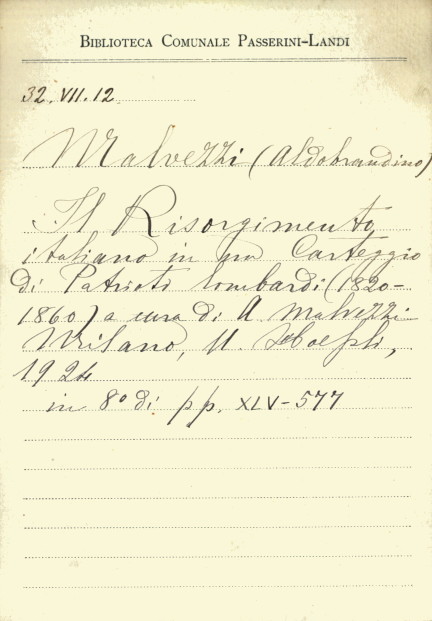 BIBLIOTECA COMUNALE PASSERINI-LANDI
32.VII.12
Malvezzi (Aldobrandino)
Il Risorgimento
italiano in un Carteggio
di Patrioti lombardi (1820-
1860) a cura di A Malvezzi
Milano, U. Hoepli,
1924
in 8° di pp. XLV-577